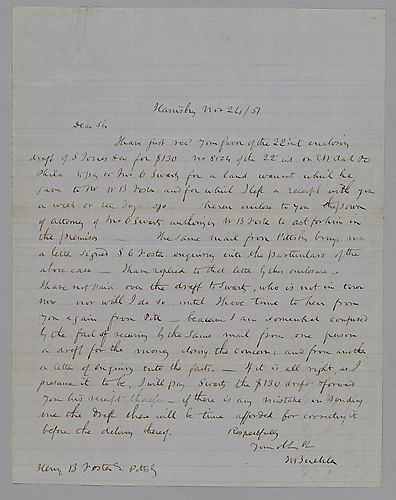 Harrisbg Nov 24/51
Dear Sir
I have just recd your favor of the 22 inst enclosing
draft of S Jones for $130. no 8124 of the 22 inst on
Phila to pay to Swartz for a land warrant which he
gave to Mr W B Foster and for which I left a receipt with you
a week or ten days ago. I herein enclose to you the power
of attorney of Swartz authorizing W B Foster to act for him in
the premises — The same mail from Pittsbg brings me
a letter signed S C Foster enquiring into the particulars of the
above case — I have replied to that letter by this enclosure.
I have not paid over the draft to Swartz, who is not in town
now. nor will I do so until I have time to hear from
you again from Pitts — because I am somewhat confused
by the fact of receiving by the same mail from one person
a draft for the money closing the concern, and from another
a letter of enquiry into the facts — If it is all right as I
presume it to be, I will pay Swartz the $130 draft & forward
you his receipt therefor — if there is any mistake in sending
me the draft there will be time afforded for correcting it
before the delivery thereof. Respectfully
Your obt St
Buehler
Henry B Foster Pittsbg